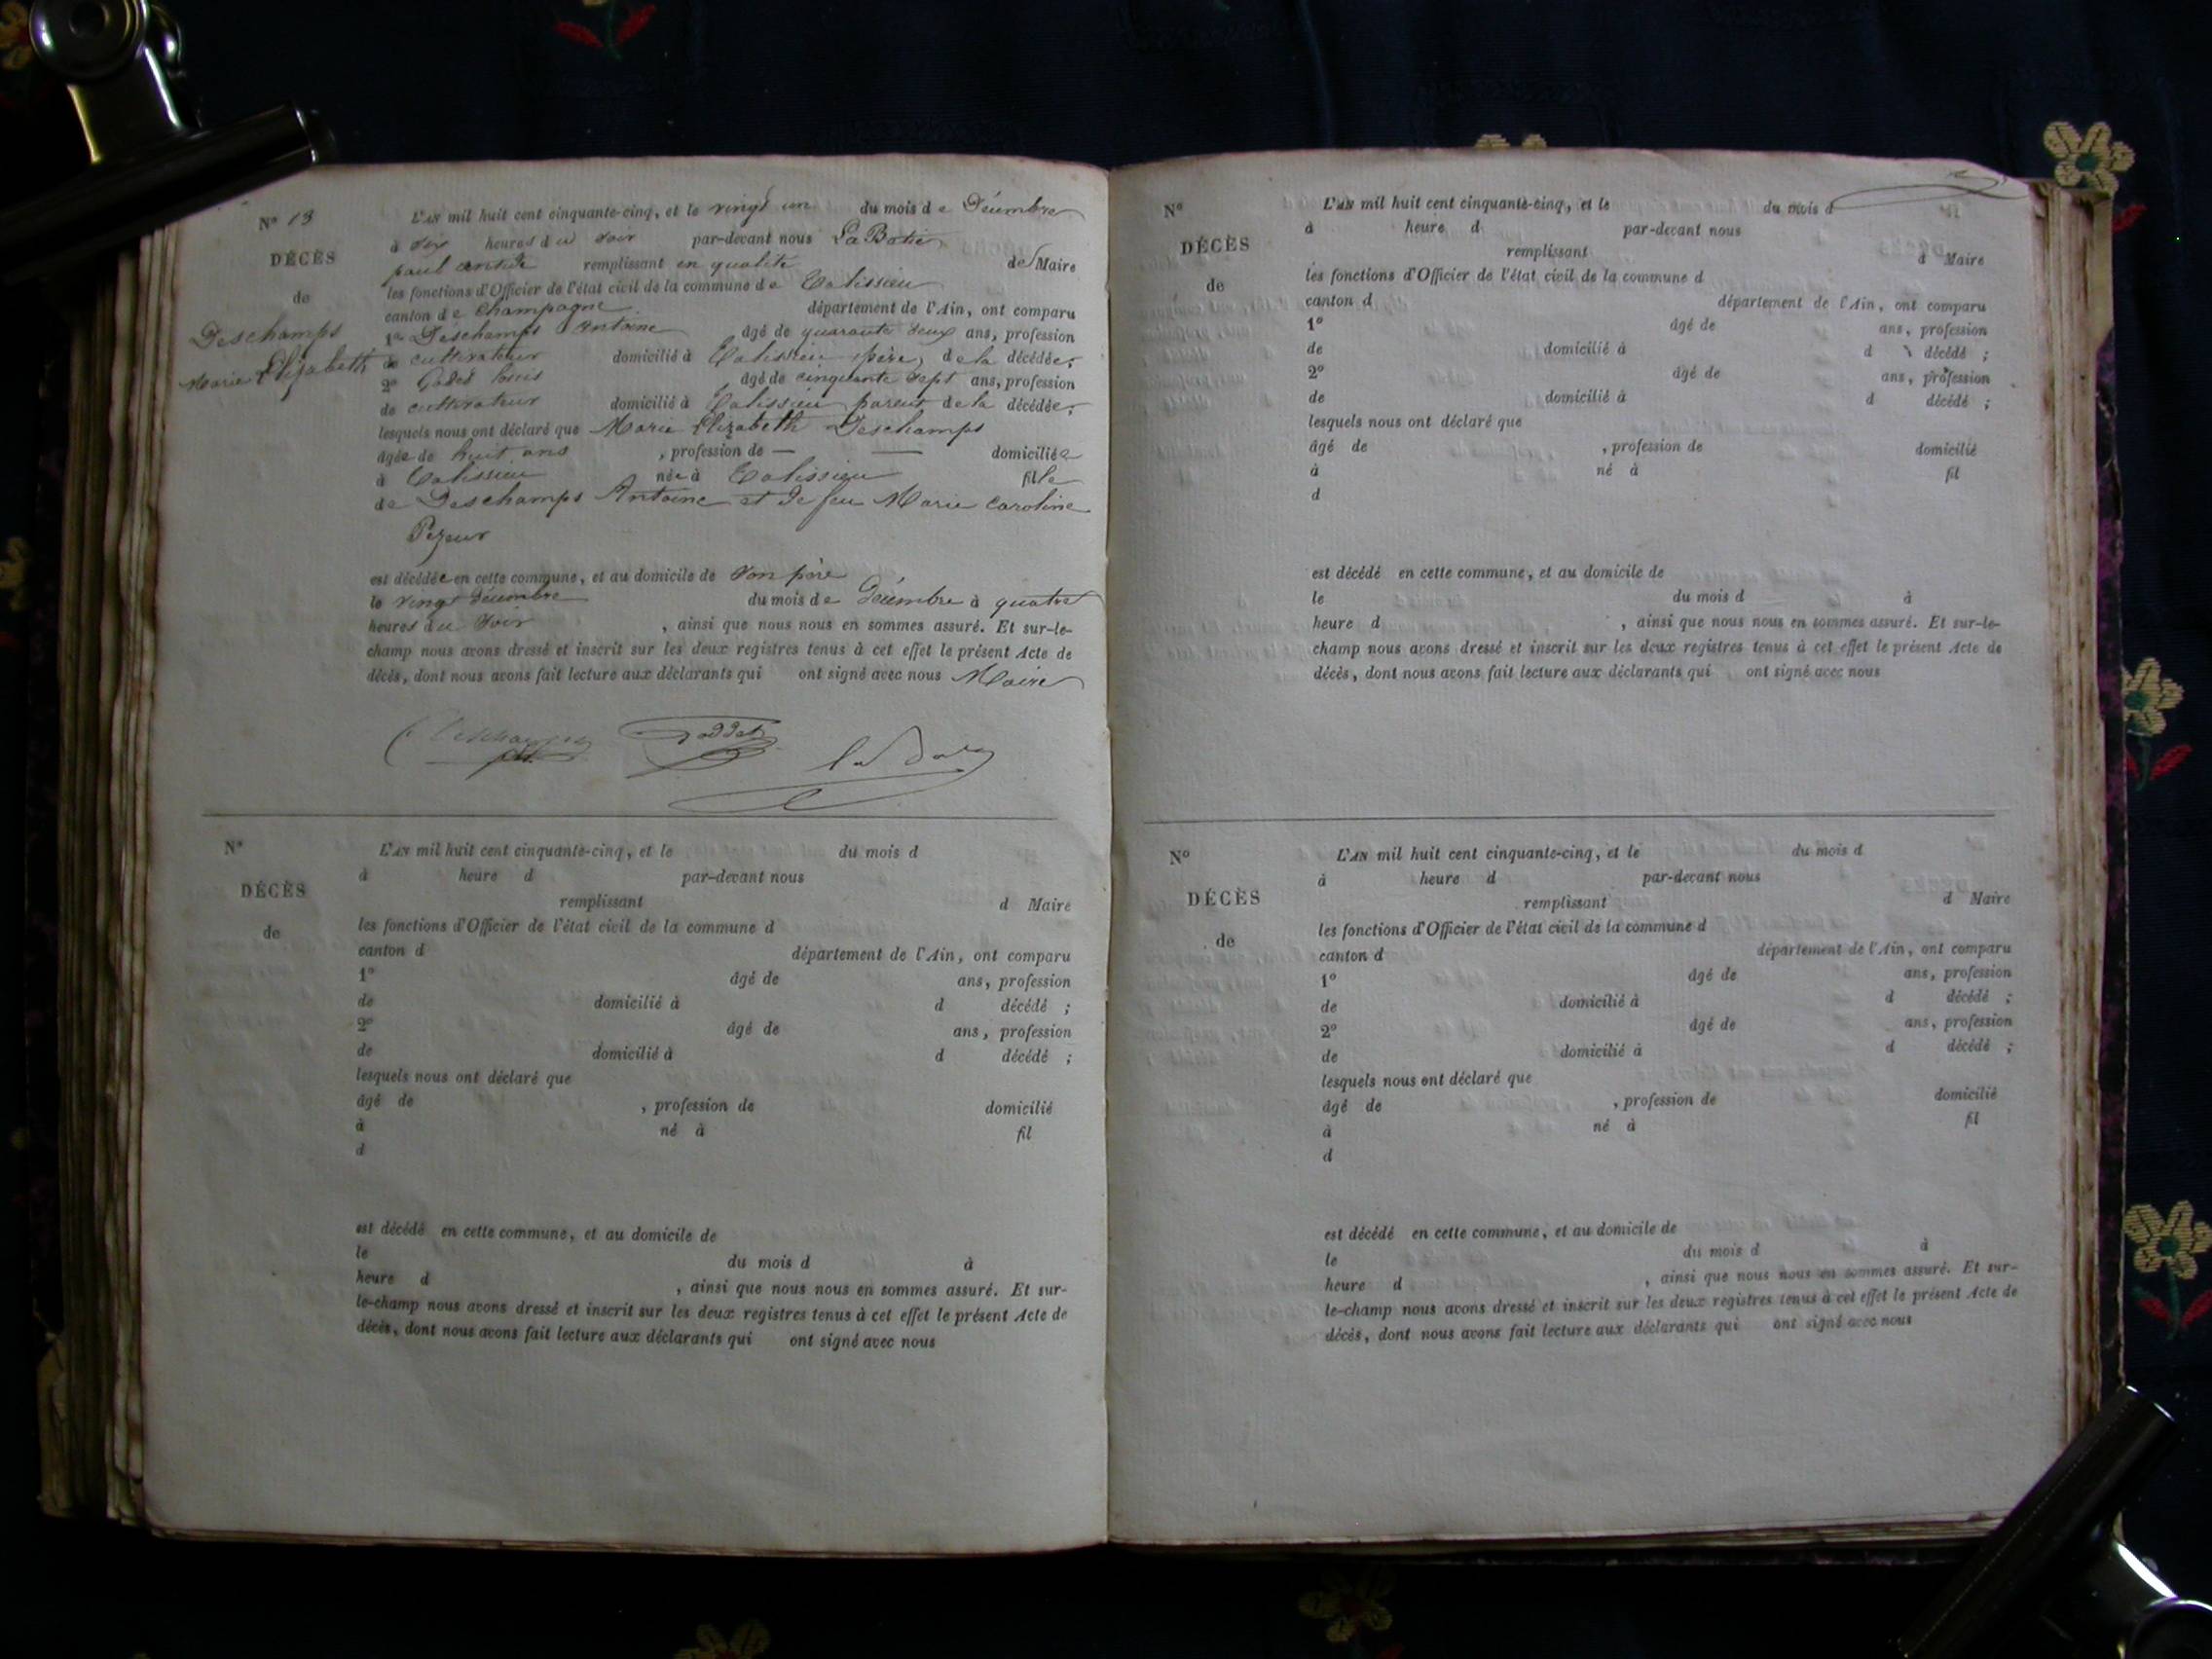 N° 13
DÉCÈS
de
Deschamps
Marie Elizabeth
L'AN mil huit cent cinquante-cinq, et le vingt un du mois de Décembre
à six heures du soir par-devant nous La Batie
paul remplissant en qualité de Maire
les fonctions d'Officier de l'état civil de la commune de Talissieu
canton de Champagne département de l'Ain, ont comparu
1° Deschamps Antoine âgé de quarante deux ans, profession
de cultivateur domicilié à Talissieu père de la décédée;
2° Godet Louis âgé de cinquante sept ans, profession
de cultivateur domicilié à Talissieu parent de la décédée;
lesquels nous ont déclaré que Marie Elizabeth Deschamps
âgée de huit ans , profession de — — domiciliée
à Talissieu née à Talissieu fille
de Deschamps Antoine et de feu Marie Caroline
Pezeur
est décédée en cette commune, et au domicile de son père
le vingt décembre du mois de Décembre à quatre
heures du soir , ainsi que nous nous en sommes assuré. Et sur-le-
champ nous avons dressé et inscrit sur les deux registres tenus à cet effet le présent Acte de
décès, dont nous avons fait lecture aux déclarants qui ont signé avec nous Maire
Deschamps Goddet
N°
DÉCÈS
de
L'AN mil huit cent cinquante-cinq, et le du mois d
à heure d par-devant nous
remplissant d Maire
les fonctions d'Officier de l'état civil de la commune d
canton d département de l'Ain, ont comparu
1° âgé de ans, profession
de domicilié à d décédé ;
2° âgé de ans, profession
de domicilié à d décédé ;
lesquels nous ont déclaré que
âgé de , profession de domicilié
à né à fil
d
est décédé en cette commune, et au domicile de
le du mois d à
heure d , ainsi que nous nous en sommes assuré. Et sur-
le-champ nous avons dressé et inscrit sur les deux registres tenus à cet effet le présent Acte de
décès, dont nous avons fait lecture aux déclarants qui ont signé avec nous
N°
DÉCÈS
de
L'AN mil huit cent cinquante-cinq, et le du mois d
à heure d par-devant nous
remplissant d Maire
les fonctions d'Officier de l'état civil de la commune d
canton d département de l'Ain, ont comparu
1° âgé de ans, profession
de domicilié à d décédé ;
2° âgé de ans, profession
de domicilié à d décédé ;
lesquels nous ont déclaré que
âgé de , profession de domicilié
à né à fil
d
est décédé en cette commune, et au domicile de
le du mois d à
heure d , ainsi que nous nous en sommes assuré. Et sur-le-
champ nous avons dressé et inscrit sur les deux registres tenus à cet effet le présent Acte de
décès, dont nous avons fait lecture aux déclarants qui ont signé avec nous
N°
DÉCÈS
de
L'AN mil huit cent cinquante-cinq, et le du mois d
à heure d par-devant nous
remplissant d Maire
les fonctions d'Officier de l'état civil de la commune d
canton d département de l'Ain, ont comparu
1° âgé de ans, profession
de domicilié à d décédé ;
2° âgé de ans, profession
de domicilié à d décédé ;
lesquels nous ont déclaré que
âgé de , profession de domicilié
à né à fil
d
est décédé en cette commune, et au domicile de
le du mois d à
heure d , ainsi que nous nous en sommes assuré. Et sur-
le-champ nous avons dressé et inscrit sur les deux registres tenus à cet effet le présent Acte de
décès, dont nous avons fait lecture aux déclarants qui ont signé avec nous